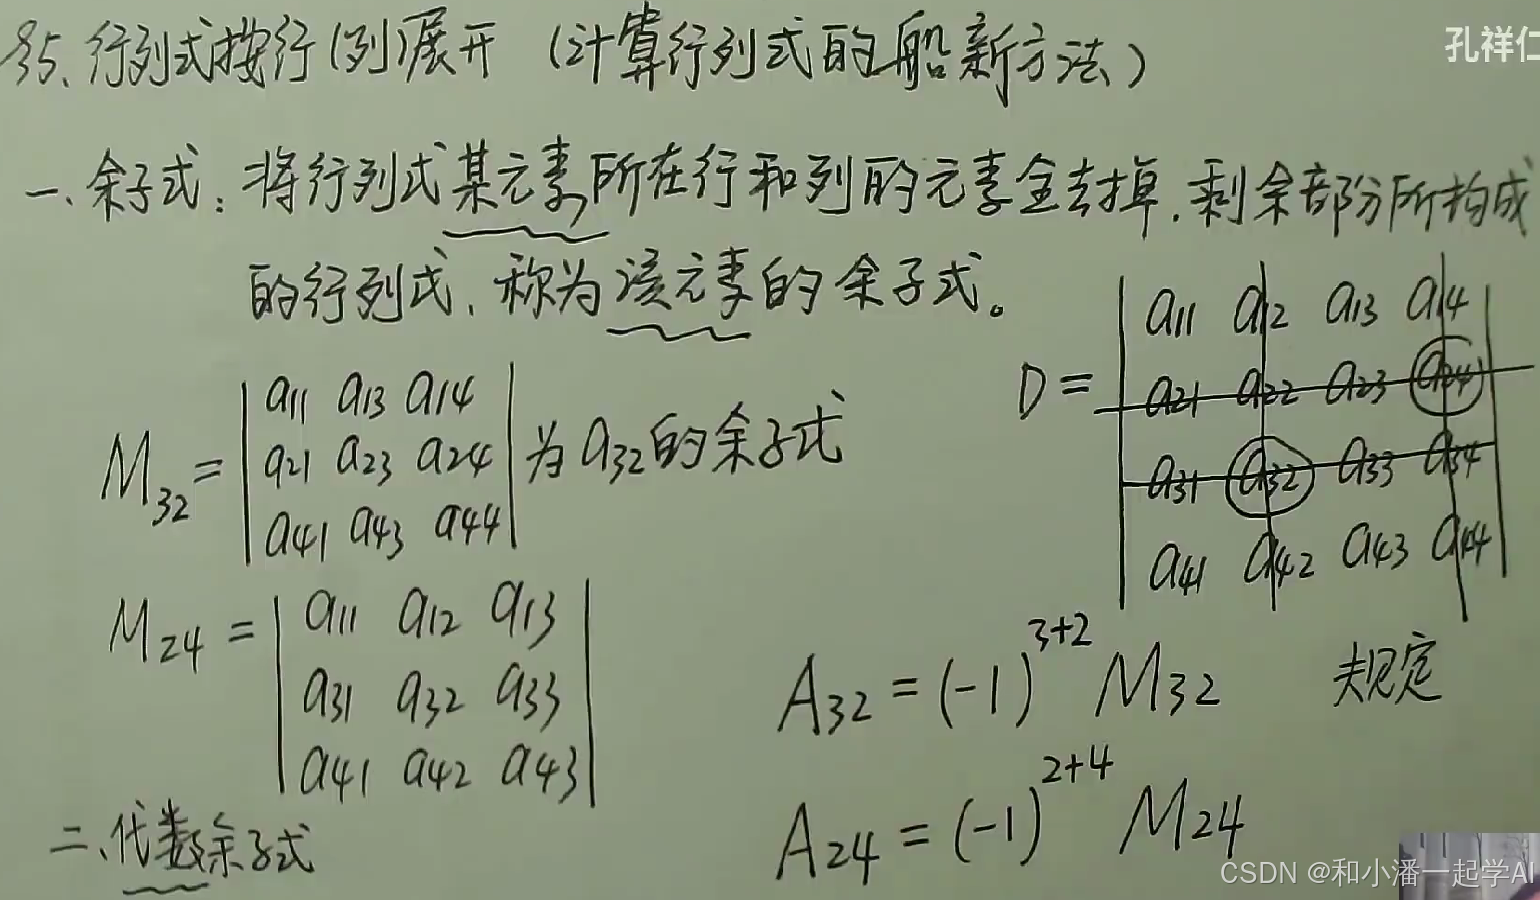 §5. 行列式按行(列)展开 (计算行列式的船新方法)
孔祥仁
一. 余子式: 将行列式某元素所在行和列的元素全去掉. 剩余部分所构成
的行列式, 称为该元素的余子式。
D = | a11 a12 a13 a14
a21 a22 a23 a24
a31 a32 a33 a34
a41 a42 a43 a44 |
M32 = | a11 a13 a14
a21 a23 a24
a41 a43 a44 | 为a32的余子式
M24 = | a11 a12 a13
a31 a32 a33
a41 a42 a43 |
二、代数余子式
A32 = (-1)^3+2 M32 规定
A24 = (-1)^2+4 M24
CSDN @和小潘一起学AI